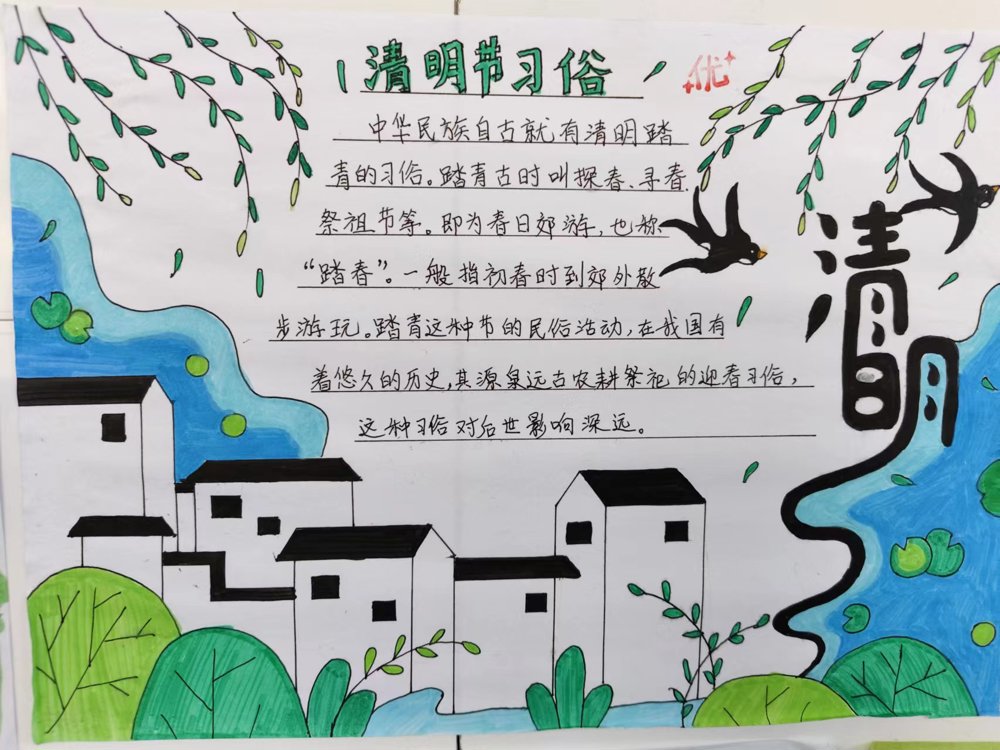 清明节习俗
优
中华民族自古就有清明踏
青的习俗。踏青古时叫探春、寻春
祭祖节等。即为春日郊游，也称
“踏春”。一般指初春时到郊外散
步游玩。踏青这种节的民俗活动，在我国有
着悠久的历史，其源泉远古农耕祭祀的迎春习俗，
这种习俗对后世影响深远。
清明